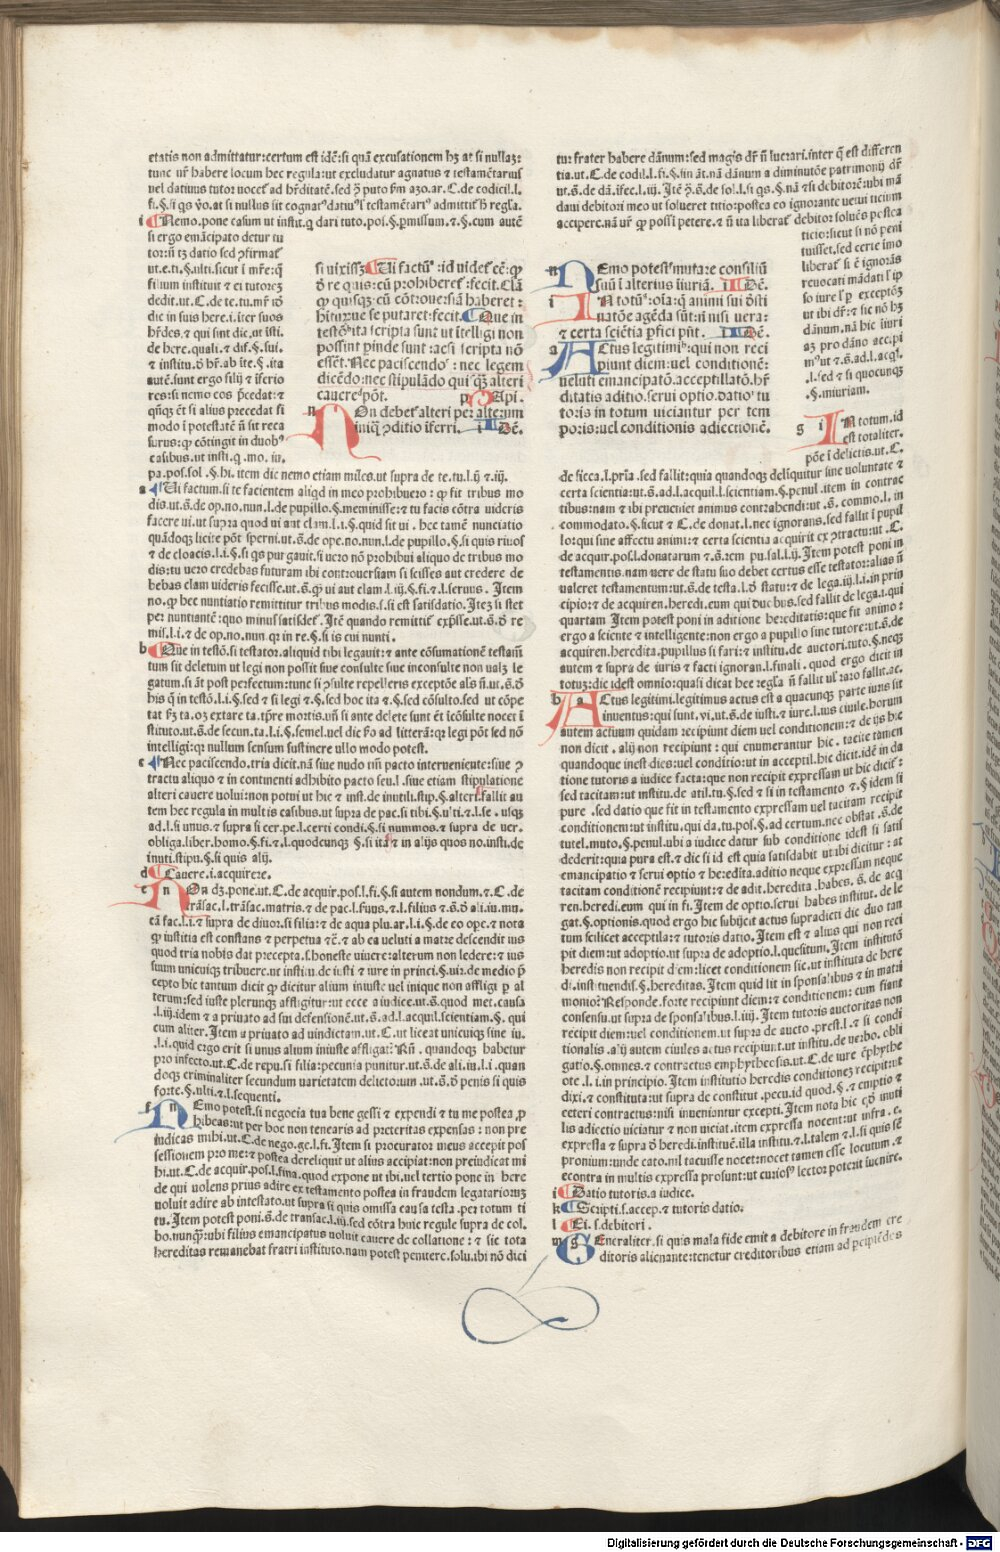 etatis non admittatur:certum est idē:si quā excusationem hꝫ at si nullaꝫ:
tunc ur̄ habere locum hec regula:ut excludatur agnatus ⁊ testamētarius
i Nemo.pone casum ut instit.q dari tuto.posi.§.pmissum.⁊.§.cum autē
si ergo emācipato detur tu
tor:n̄ tꝫ datio sed ꝯfirmat᷑
filium instituit ⁊ ei tutoreꝫ
dedit.ut.C.de te.tu.mr̄ iō
dic in suis here.i.iter suos
hr̄des.⁊ qui sint dic.ut isti.
de here.quali.⁊ dif.§.sui.
autē.sunt ergo filij ⁊ iferio
res:si nemo eos p̄cedat:⁊
qn̄sq̄ ēt si alius precedat si
modo i potestatē n̄ sit reca
surus:qꝫ cōtingit in duobꝰ
casibus.ut insti.q.mo.iu.
pa.pos.sol.§.hi.item dic nemo etiam miles.ut supra de te.tu.l.ij ⁊.iij.
a Ui factum.si te facientem aliqd in meo prohibuero:qꝫ fit tribus mo
dis.ut.s.de op.no.nun.l.de pupillo.§.meminisse:⁊ tu facis cōtra uideris
facere ui.ut supra quod ui aut clam.l.i.§.quid sit ui.hec tamē nunciatio
quādoqꝫ licite pōt sperni.ut.s.de ope.no.nun.l.de pupillo.§.si quis riuos
⁊ de cloacis.l.i.§.si qs pur gauit.si uero nō prohibui aliquo de tribus mo
dis:tu uero credebas futuram ibi controuersiam si scisses aut credere de
bebas clam uideris fecisse.ut.s.qꝫ ui aut clam.l.iij.§.fi.⁊.l.seruus. Item
no.qꝫ hec nuntiatio remittitur tribus modis.s.si est satisdatio.Iteꝫ si stet
per nuntiantē:quo minus satisdet᷑.Itē quando remittit᷑ exp̄sse.ut.s.ō re
mis.l.i.⁊ de op.no.nun.qꝫ in re.§.si is cui nunti.
b Que in testō.si testator.aliquid tibi legauit:⁊ ante cōsumationē testam̄
tum sit deletum ut legi non possit siue consulte siue inconsulte non ualꝫ le
gatum.si āt post perfectum:tunc si ꝯsulte repelleris exceptōe als̄ n̄.ut.s.ō
his q̄ in testō.l.i.§.sed ⁊ si legi ⁊.§.sed hoc ita ⁊.§.sed cōsulto.sed ut cōpe
intelligi:qꝫ nullum sensum sustinere ullo modo potest.
c Nec paciscendo.tria dicit.nā siue nudo nm̄ pacto interueniente:siue ꝯ
tractu aliquo ⁊ in continenti adhibito pacto seu.l.siue etiam stipulatione
alteri cauere uolui:non potui ut hic ⁊ inst.de inutili.stip.§.alteri.fallit au
tem hec regula in multis casibus.ut supra de pac.si tibi.§.ulti.⁊.l.se.usqꝫ
ad.l.si unus.⁊ supra si cer.pe.l.certi condi.§.si nummos.⁊ supra de uer.
obliga.liber.homo.§.fi.⁊.l.quodcunqꝫ §.si ita ⁊ in alijs quos no.insti.de
inuti.stipu.§.si quis alij.
d Cauere.i.acquirere.
e n On dꝫ.pone.ut.C.de acquir.pos.l.fi.§.si autem nondum.⁊.C.de
trāsac.l.trāsac.matris.⁊ de pac.l.fuus.⁊.l.filius ⁊.s.ō ali.iu.mu.
cā fac.l.i.⁊ supra de diuor.si filia:⁊ de aqua plu.ar.l.i.§.de eo ope.⁊ nota
qꝫ iustitia est constans ⁊ perpetua ⁊c̄.⁊ ab ea ueluti a matre descendit ius
quod tria nobis dat precepta.s.honeste uiuere:alterum non ledere:⁊ ius
suum unicuiqꝫ tribuere.ut institu.de iusti ⁊ iure in princi.§.ui:ꝫ.de medio p̄
cepto hic tantum dicit qꝫ dicitur alium iniuste uel inique non affligi p al
terum:sed iuste plerunqꝫ affligitur:ut ecce a iudice.ut.s.quod met.causa
.l.iij.idem ⁊ a priuato ad sui defensionē.ut.s.ad.l.acquil.scientiam.§.qui
cum aliter.Item a priuato ad uindictam.ut.C.ut liceat unicuiqꝫ sine iu.
.l.i.quid ergo erit si unus alium iniuste affligat? Rn̄.quandoqꝫ habetur
pro infecto.ut.C.de repu.si filia:pecunia punitur.ut.s.de ali.iu.l.i.quan
doqꝫ criminaliter secundum varietatem delictorum.ut.s.ō penis si quis
forte.§.ulti.⁊.l.sequenti.
f n Emo potest.si negocia tua bene gessi ⁊ expendi ⁊ tu me postea ꝓ
hibeas:ut per hoc non tenearis ad preteritas expensas:non pre
iudicas mihi.ut.C.de nego.ge.l.fi.Item si procurator meus accepit pos
sessionem pro me:⁊ postea dereliquit ut alius accipiat:non preiudicat mi
hi.ut.C.de acquir.pos.l.fina.quod expone ut ibi.uel tertio pone in here
de qui uolens prius adire ex testamento postea in fraudem legatariorum
uoluit adire ab intestato.ut supra si quis omissa causa testa.per totum ti
tu.Item potest poni.s.de transac.l.iij.sed cōtra huic regule supra de col.
bo.nunqꝫ:ubi filius emancipatus uoluit cauere de collatione:⁊ sic tota
hereditas remanebat fratri instituto.nam potest penitere.solu.ibi nō dici
si uixisꝫ Ui factūꝰ:id uidet᷑ eē:qꝫ
ō re quis:cū prohiberet᷑:fecit.Clā
qꝫ quisqꝫ:cū cōtrouersiā haberet:
biturue se putaret:fecit. Que in
testōꝰita scripta sunt ut itelligi non
possint:pinde sunt:acsi scripta nō
essēt.Nec paciscendo:nec legem
dicēdo:nec stipulādo qui qꝫ alteri
cauereꝰpōt. p Api.
n On debet᷑ alteri per alterum
iniqꝫ ꝯditio iferri. i Dē.
n Emo potestꝰmutare consiliū
suū ī alterius iiuriā. i Dē.
i N totūꝰ:oīa:q̄ animi sui ōsti
natōe agēda sūt:n̄ nisi uera:
⁊ certa sciētia ꝑfici pn̄t. i Dē.
a Ctus legitimiꝰ:qui non reci
piunt diem:uel conditionē:
ueluti emancipatō.acceptillatō.hr̄
ditatis aditio.serui optio.datioꝰtu
toris:in totum uiciantur per tem
poris:uel conditionis adiectionē.
tur frater habere dānum:sed magis dr̄ n̄ lucrari.inter q̄ est differen
tia.ut.C.de codil.l.fi.§.fin āt.nā dānum a diminutōe patrimonij dr̄
daui debitori meo ut solueret titio:postea eo ignorante uetui titium
accipere.nā ur̄ qꝫ possi petere.⁊ n̄ ita liberat᷑ debitor soluēs postea
ticio:sicut si nō peni
tuisset.sed certe imo
liberat᷑ si ē ignorās
reuocati mādati l ip
so iure l p exceptōꝫ
ut ibi dr̄:⁊ sic nō hꝫ
dānum.nā hic iniuri
aꝫ pro dāno accipi
.l.sed ⁊ si quocunqꝫ
.§.iniuriam.
g i N totum.id
est totaliter.
pōe i delictis.ut.C.
de sicca.l.pria.sed fallit:quia quandoqꝫ deliquitur sine uoluntate ⁊
certa scientia:ut.s.ad.l.acquil.l.scientiam.§.penul.item in contrac
tibus:nam ⁊ ibi preueniet animus contrahendi:ut.s.commo.l.in
commodato.§.sicut ⁊ C.de donat.l.nec ignorans.sed fallit i pupil
lo:qui sine affectu animi:⁊ certa scientia acquirit ex ꝯtractu:ut.C.
de acquir.pos.l.donatarum ⁊.s.rem pu.sal.l.ij.Item potest poni in
testamentis.nam uere de statu suo debet certus esse testator:alias n̄
ualeret testamentum:ut.s.de testa.l.ō statu:⁊ de lega.iij.l.i.in prin
cipio:⁊ de acquiren.heredi.cum qui duobus.sed fallit de lega.i.qui
quartam Item potest poni in aditione hereditatis:que fit animo:
ergo a sciente ⁊ intelligente:non ergo a pupillo sine tutore:ut.s.de
acquiren.heredita.pupillus si fari:⁊ institu.de auctori.tuto.§.neqꝫ
autem ⁊ supra de iuris ⁊ facti ignoran.l.finali.quod ergo dicit in
totuꝫ:dic idest omnio:quasi dicat hec regl̄a n̄ fallit ul̄ raro fallit.ac.
h a Ctus legitimi.legitimus actus est a quacunqꝫ parte iuris sit
inuentus:qui sunt.vi.ut.s.de iusti.⁊ iure.l.ius ciuile.horum
autem actuum quidam recipiunt diem uel conditionem:⁊ de ijs hic
non dicit.alij non recipiunt:qui enumerantur hic.tacite tamen
quandoque inest dies:uel conditio:ut in acceptil.hic dicit.idē in da
tione tutoris a iudice facta:que non recipit expressam ut hic dicit᷑:
sed tacitam:ut institu.de atil.tu.§.sed ⁊ si in testamento ⁊.§.idem si
pure.sed datio que fit in testamento expressam uel tacitam recipit
conditionem:ut institu.qui da.tu.pos.§.ad certum.nec obstat.s.de
tutel.muto.§.penul.ubi a iudice datur sub conditione idest si satis
dederit:quia pura est.⁊ dic si id est quia satisdabit ut ibi dicitur:at
emancipatio ⁊ serui optio ⁊ heredita.aditio neque expressam neque
tacitam conditionē recipiunt:⁊ de adit.heredita.habes.s.de acq
ren.heredi.eum qui in fi.Item de optio.serui habes institut.de le
gat.§.optionis.quod ergo hic subijcit actus supradicti dic duo tan
tum scilicet acceptila:⁊ tutoris datio.Item est ⁊ alius qui non reci
pit diem:ut adoptio.ut supra de adoptio.l.quesitum.Item institutō
heredis non recipit diem:licet conditionem sic.ut instituta de here
di.instituendis.§.hereditas.Item quid lit in sponsalibus ⁊ in matri
monio? Responde.forte recipiunt diem:⁊ conditionem:cum fiant
consensu.ut supra de sponsalibus.l.iiij.Item tutoris auctoritas non
recipit diem:uel conditionem.ut supra de aucto.prest.l.⁊ si condi
tionalis.alij autem ciuiles actus recipiunt.ut institu.de uerbo.obli
gatio.§.omnes.⁊ contractus emphytheosis.ut.C.de iure ēphythe
ote.l.i.in principio.Item institutio heredis conditioneꝫ recipit:ut
dixi.⁊ constituta:ut supra de constitut.pecu.id quod.§.⁊ emptio ⁊
ceteri contractus:nisi inueniantur excepti.Item nota hic qꝫ muti
lis adiectio uiciatur ⁊ non uiciat.item expressa nocent:ut infra.e.
expressa ⁊ supra ō heredi.instituē.illa institu.⁊.l.talem ⁊.l.si quis sē
pronium:unde cato.nil tacuisse nocet:nocet tamen esse locutum.⁊
econtra in multis expressa prosunt:ut curiosꝰ lector poterit inuenire.
i Datio tutoris.a iudice.
k Scripti.s.accep.⁊ tutoris datio.
l Ei.s.debitori.
m g Eneraliter.si quis mala fide emit a debitore in fraudem cre
ditoris alienante:tenetur creditoribus etiam ad pcipiēdes
Digitalisierung gefördert durch die Deutsche Forschungsgemeinschaft - DFG